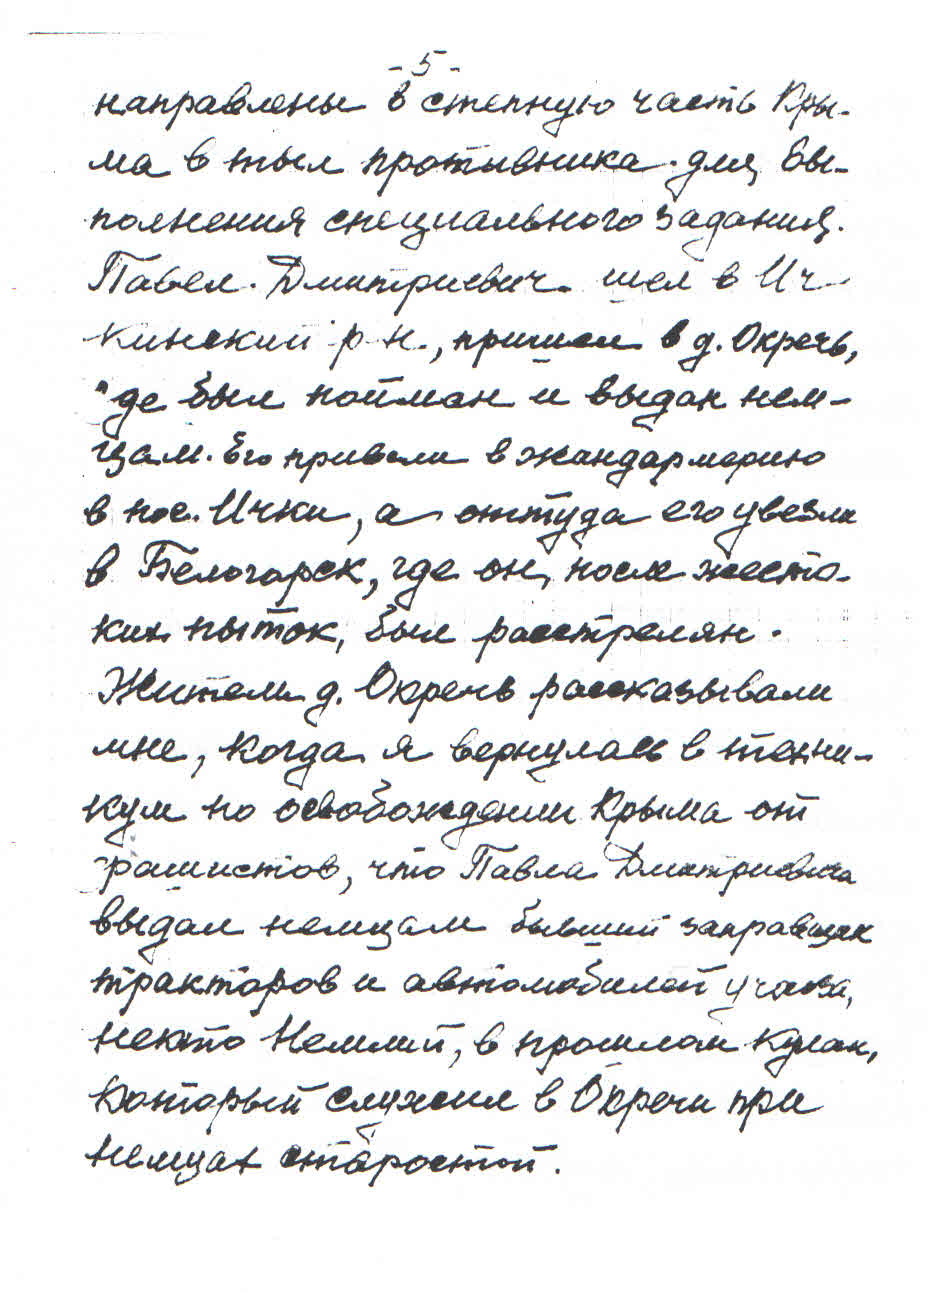 -5-
направлены в степную часть Кры-
ма в тыл противника для вы-
полнения специального задания.
Павел Дмитриевич шел в Ич-
кинский р-н., пришел в д. Окречь,
где был пойман и выдан нем-
цам. Его привели в жандармерию
в пос. Ички, а оттуда его увезли
в Белогорск, где он, после жесто-
ких пыток, был расстрелян.
Жители д. Окречь рассказывали
мне, когда я вернулась в техни-
кум по освобождении Крыма от
фашистов, что Павла Дмитриевича
выдал немцам бывший заправщик
тракторов и автомобилей
некто в прошлом кулак,
который служил в Окречи при
немцах старостой.